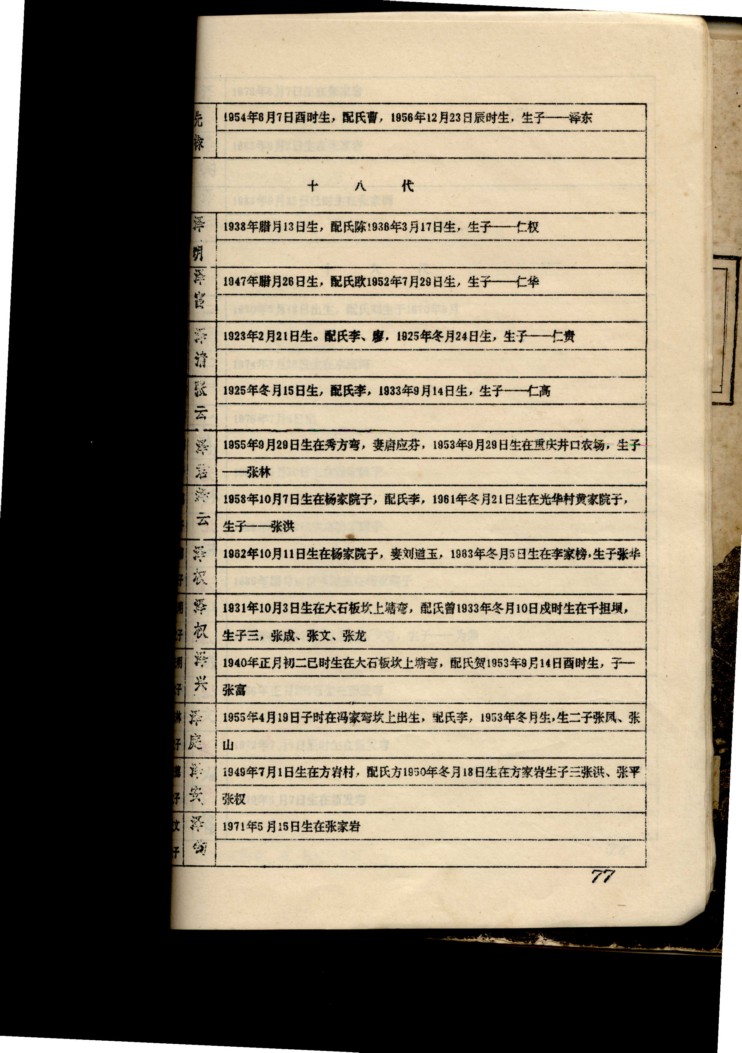 1954年6月7日酉时生，配氏曹，1956年12月23日辰时生，生子——泽东
十八代
泽明
1938年腊月13日生，配氏陈1936年3月17日生，生子——仁权
泽官
1947年腊月26日生，配氏欧1952年7月29日生，生子——仁华
泽清
1923年2月21日生。配氏李、廖，1925年冬月24日生，生子——仁贵
张云
1925年冬月15日生，配氏李，1933年9月14日生，生子——仁高
泽君
1955年9月29日生在秀方弯，妻唐应芬，1953年9月29日生在重庆井口农场，生子
——张林
泽云
1958年10月7日生在杨家院子，配氏李，1961年冬月21日生在光华村黄家院子，
生子——张洪
泽权
1962年10月11日生在杨家院子，妻刘道玉，1963年冬月5日生在李家榜，生子张华
泽权
1931年10月3日生在大石板坎上塘弯，配氏曾1933年冬月10日戌时生在千担坝，
生子三，张成、张文、张龙
泽兴
1940年正月初二巳时生在大石板坎上塘弯，配氏贺1953年9月14日酉时生，子—
张富
泽庭
1955年4月19日子时在冯家弯坎上出生，配氏李，1953年冬月生，生二子张凤、张
山
泽安
1949年7月1日生在方岩村，配氏方1950年冬月18日生在方家岩生子三张洪、张平
张权
泽
1971年5月15日生在张家岩
77